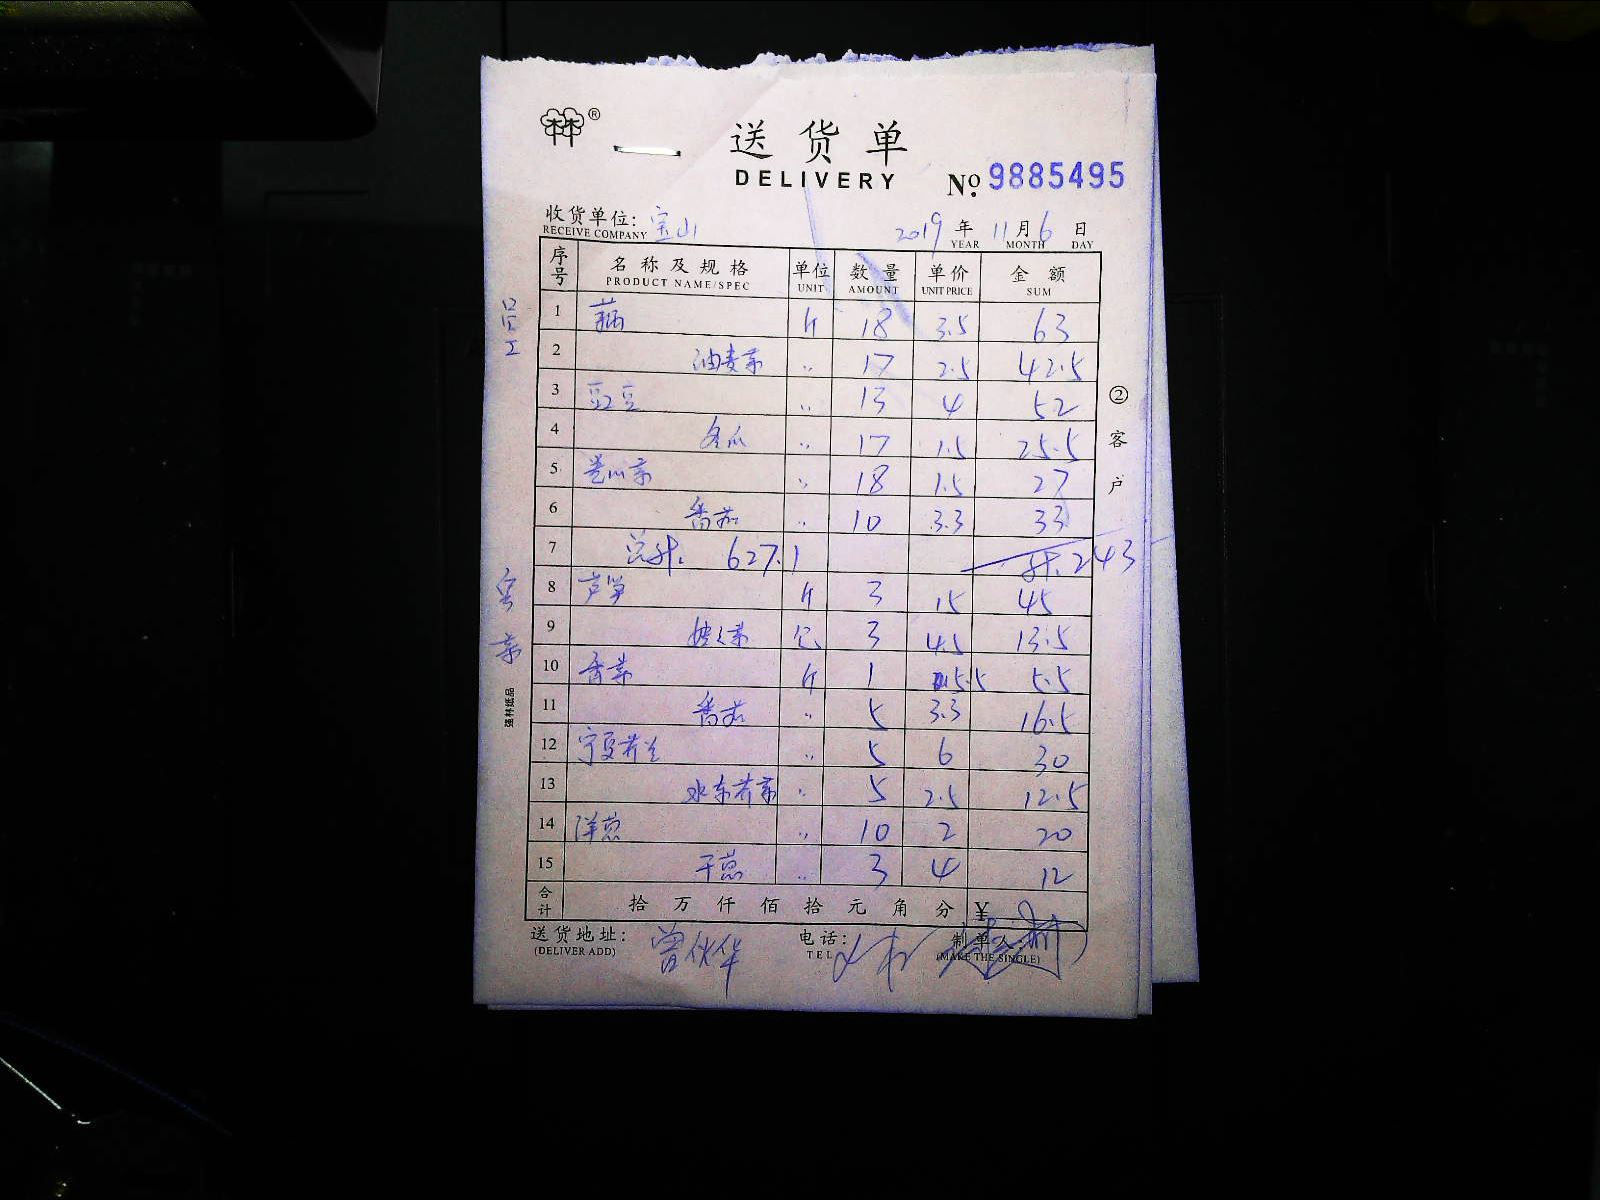 ®
送货单
DELIVERY
№ 9885495
收货单位: 宝山 2019 年 11 月 6 日
RECEIVE COMPANY YEAR MONTH DAY
序号 名称及规格 单位 数量 单价 金额
PRODUCT NAME/SPEC UNIT AMOUNT UNIT PRICE SUM
员工
1 藕 斤 18 3.5 63
2 油麦菜 〃 17 2.5 42.5
3 豆豆 〃 13 4 52
4 冬瓜 〃 17 1.5 25.5
5 卷心菜 〃 18 1.5 27
6 番茄 〃 10 3.3 33
7 总计. 627.1 计. 243
8 芦笋 斤 3 15 45
9 娃娃菜 包 3 4.5 13.5
10 香菜 斤 1 5.5 5.5
11 番茄 〃 5 3.3 16.5
12 宁夏芥兰 〃 5 6 30
13 水东芥菜 〃 5 2.5 12.5
14 洋葱 〃 10 2 20
15 干葱 〃 3 4 12
合计 拾 万 仟 佰 拾 元 角 分 ¥
送货地址: 电话: 制单人:
(DELIVER ADD) TEL (MAKE THE SINGLE)
② 客户
强林纸品